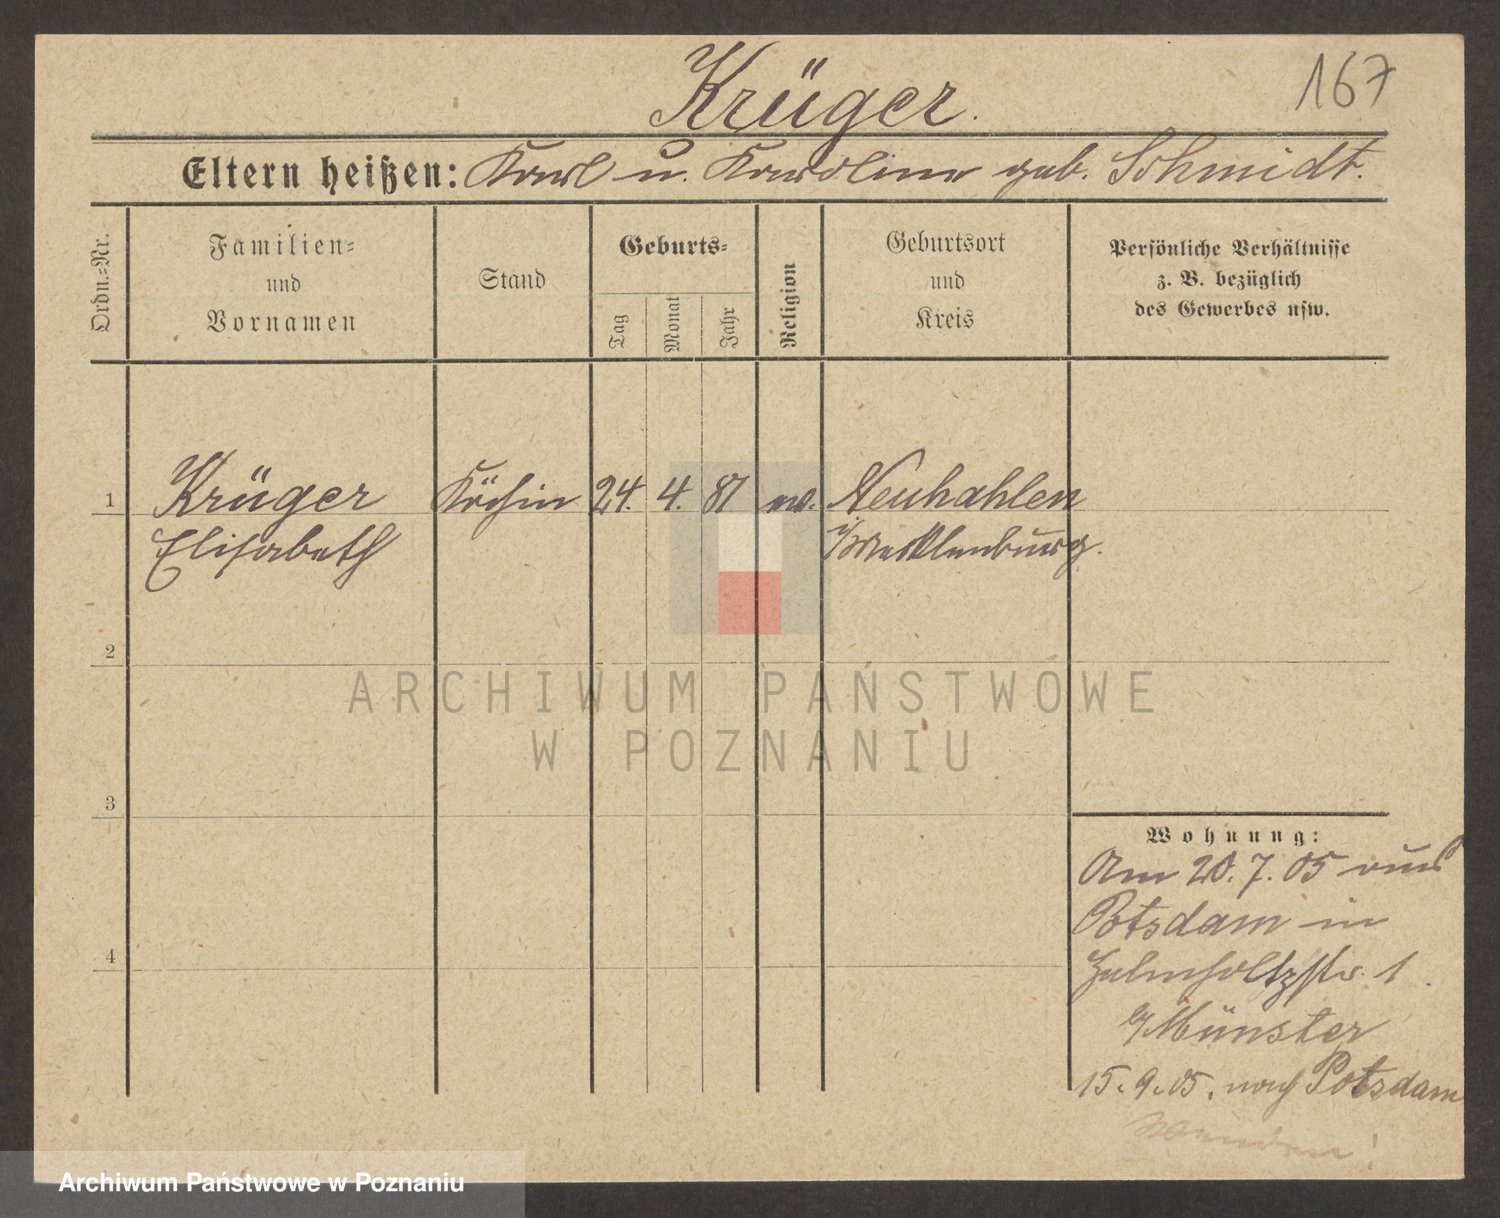 Krüger.
167
Eltern heißen: Karl u. Karoline geb. Schmidt.
Ordn.=Nr.
Familien=
und
Vornamen
Stand
Geburts=
Tag
Monat
Jahr
Religion
Geburtsort
und
Kreis
Persönliche Verhältnisse
z. B. bezüglich
des Gewerbes usw.
1 Krüger Köchin 24. 4. 87 ev. Neuhahlen
Elisabeth i/Mecklenburg.
2
ARCHIWUM PAŃSTWOWE
W POZNANIU
3
Wohnung:
Am 20. 7. 05 aus
Potsdam in
4
Helmholtzstr. 1
b/Münster
15.9.05. nach Potsdam
wenden!
Archiwum Państwowe w Poznaniu